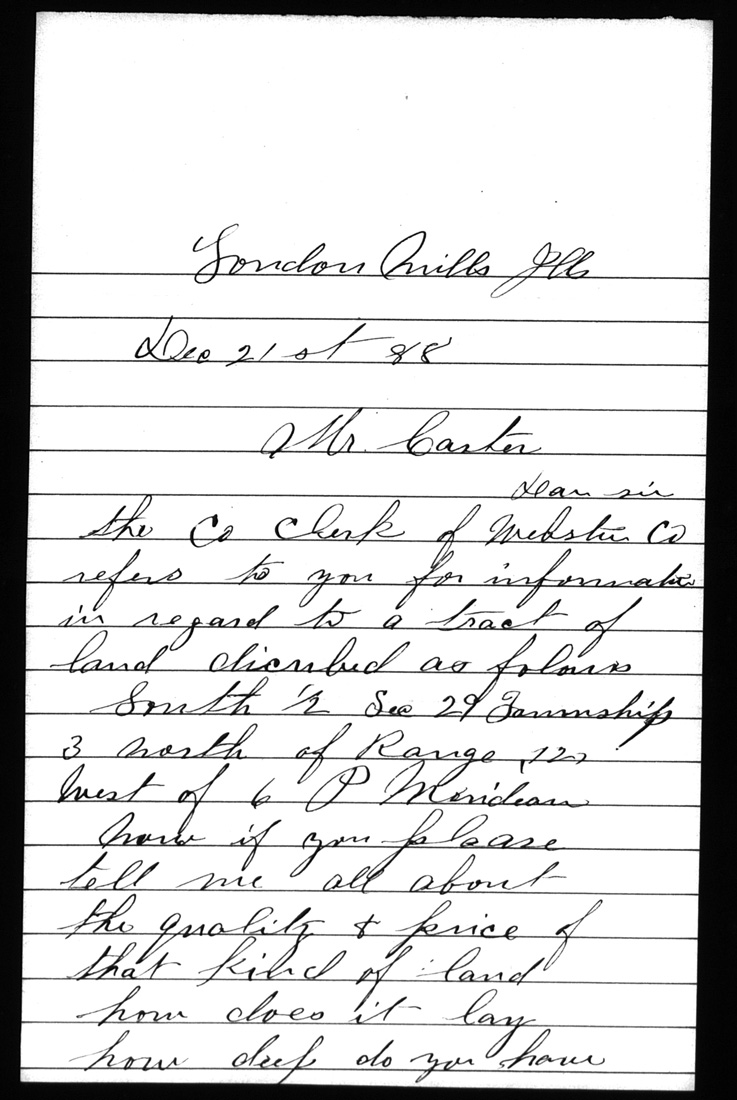 London Mills Ills
Dec 21 st 88
Mr. Carter
Dear sir
the Co Clerk of Webster Co
refers to you for information
in regard to a tract of
land discribed as folows
South 1/2 Sec 29 Township
3 north of Range 12
West of 6 P Meridean
now if you please
tell me all about
the quality & price of
that kind of land
how does it lay
how deep do you have